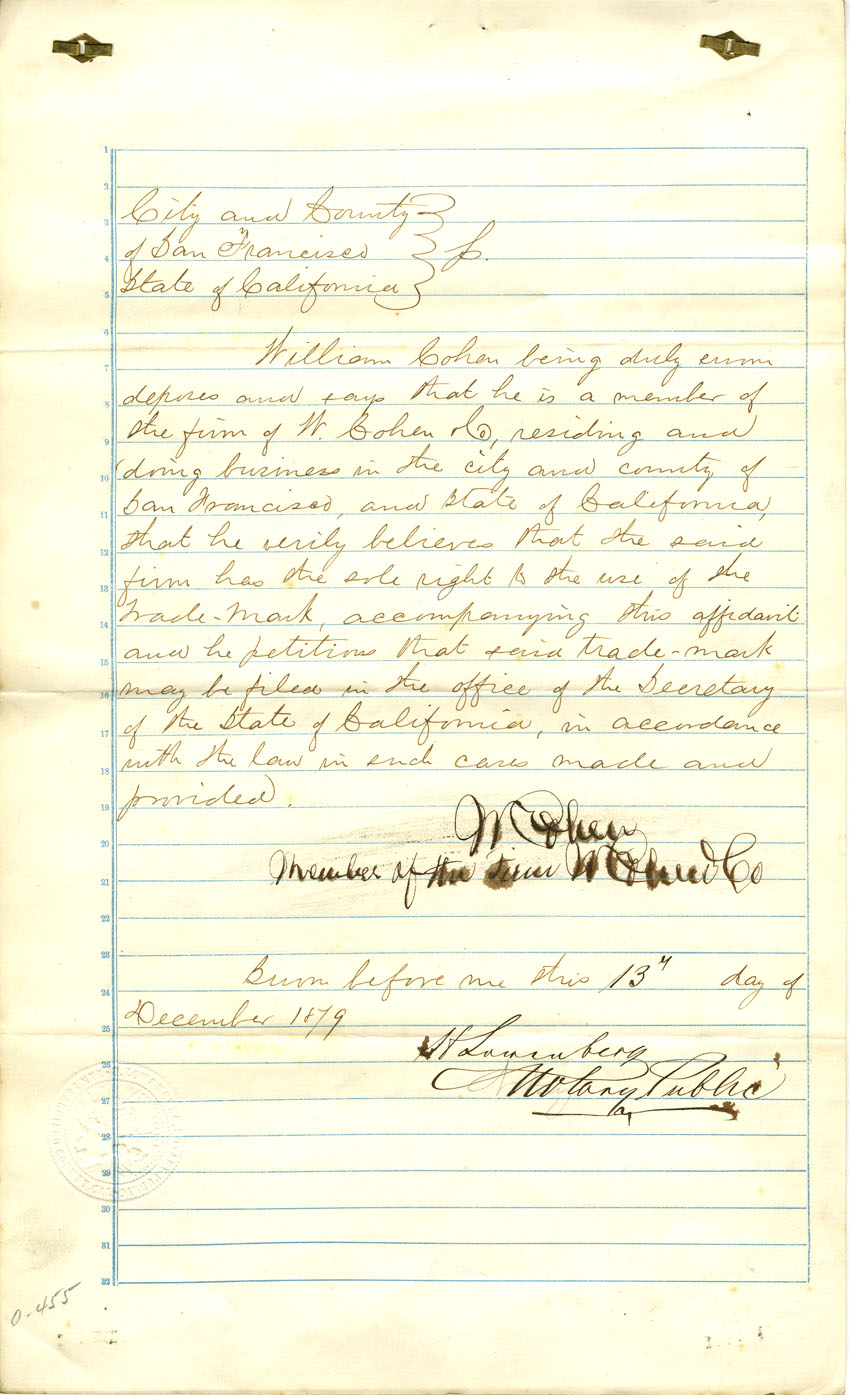 City and County
of San Francisco } ss.
State of California
William Cohen being duly sworn
deposes and says that he is a member of
the firm of W. Cohen & Co, residing and
doing business in the city and county of
San Francisco, and State of California,
that he verily believes that the said
firm has the sole right to the use of the
trade-mark, accompanying this affidavit
and he petitions that said trade-mark
may be filed in the office of the Secretary
of the State of California, in accordance
with the law in such cases made and
provided.
W Cohen
Member of the Firm W Cohen & Co
Sworn before me this 13th day of
December 1879
H Lowenberg
Notary Public
0-455
1
2
3
4
5
6
7
8
9
10
11
12
13
14
15
16
17
18
19
20
21
22
23
24
25
26
27
28
29
30
31
32